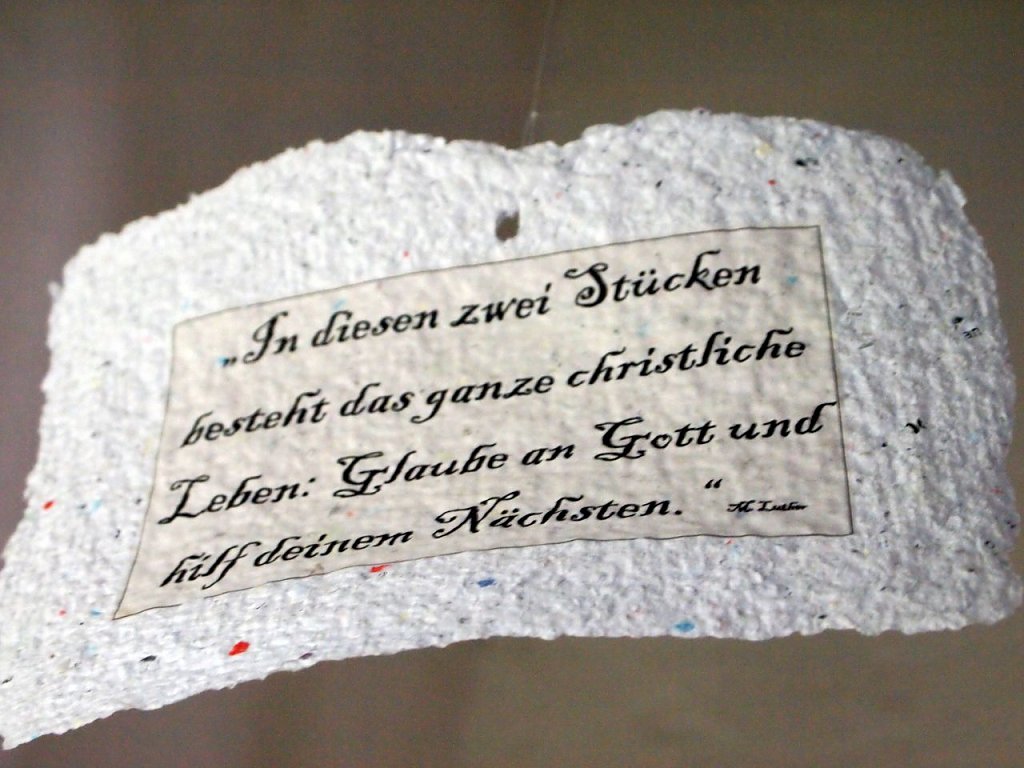 „In diesen zwei Stücken
besteht das ganze christliche
Leben: Glaube an Gott und
hilf deinem Nächsten. “ M. Luther